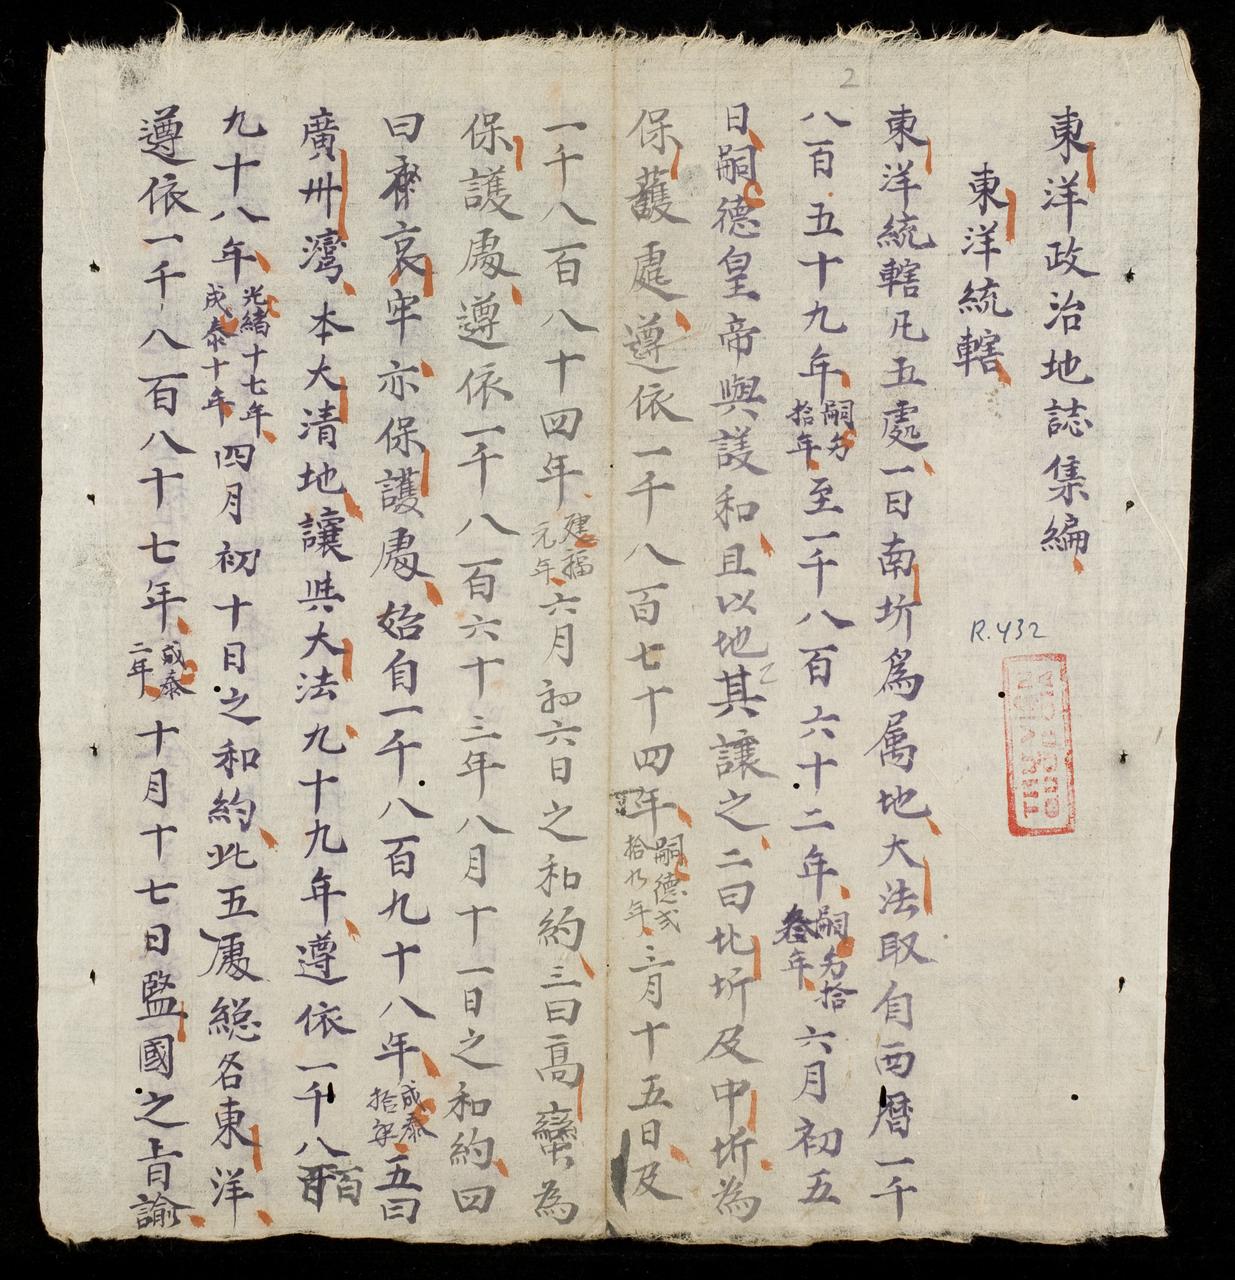 2
東洋政治地誌集編
東洋統轄
東洋統轄凡五處一曰南圻爲属地大法取自西曆一千
八百五十九年嗣为拾年至一千八百六十二年嗣为拾叄年六月初五
日嗣德皇帝與議和且以地其讓之二曰北圻及中圻為
保護處遵依一千八百七十四年嗣德弍拾九年三月十五日及
一千八百八十四年建福元年六月初六日之和約三曰高蠻為
保護處遵依一千八百六十三年八月十一日之和約四
曰哀牢亦保護處始自一千八百九十八年成泰拾年五曰
廣州灣本大清地讓與大法九十九年遵依一千八百
九十八年光緒十七年成泰十年四月初十日之和約此五處總名東洋
遵依一千八百八十七年成泰二年十月十七日監國之旨諭
R.432